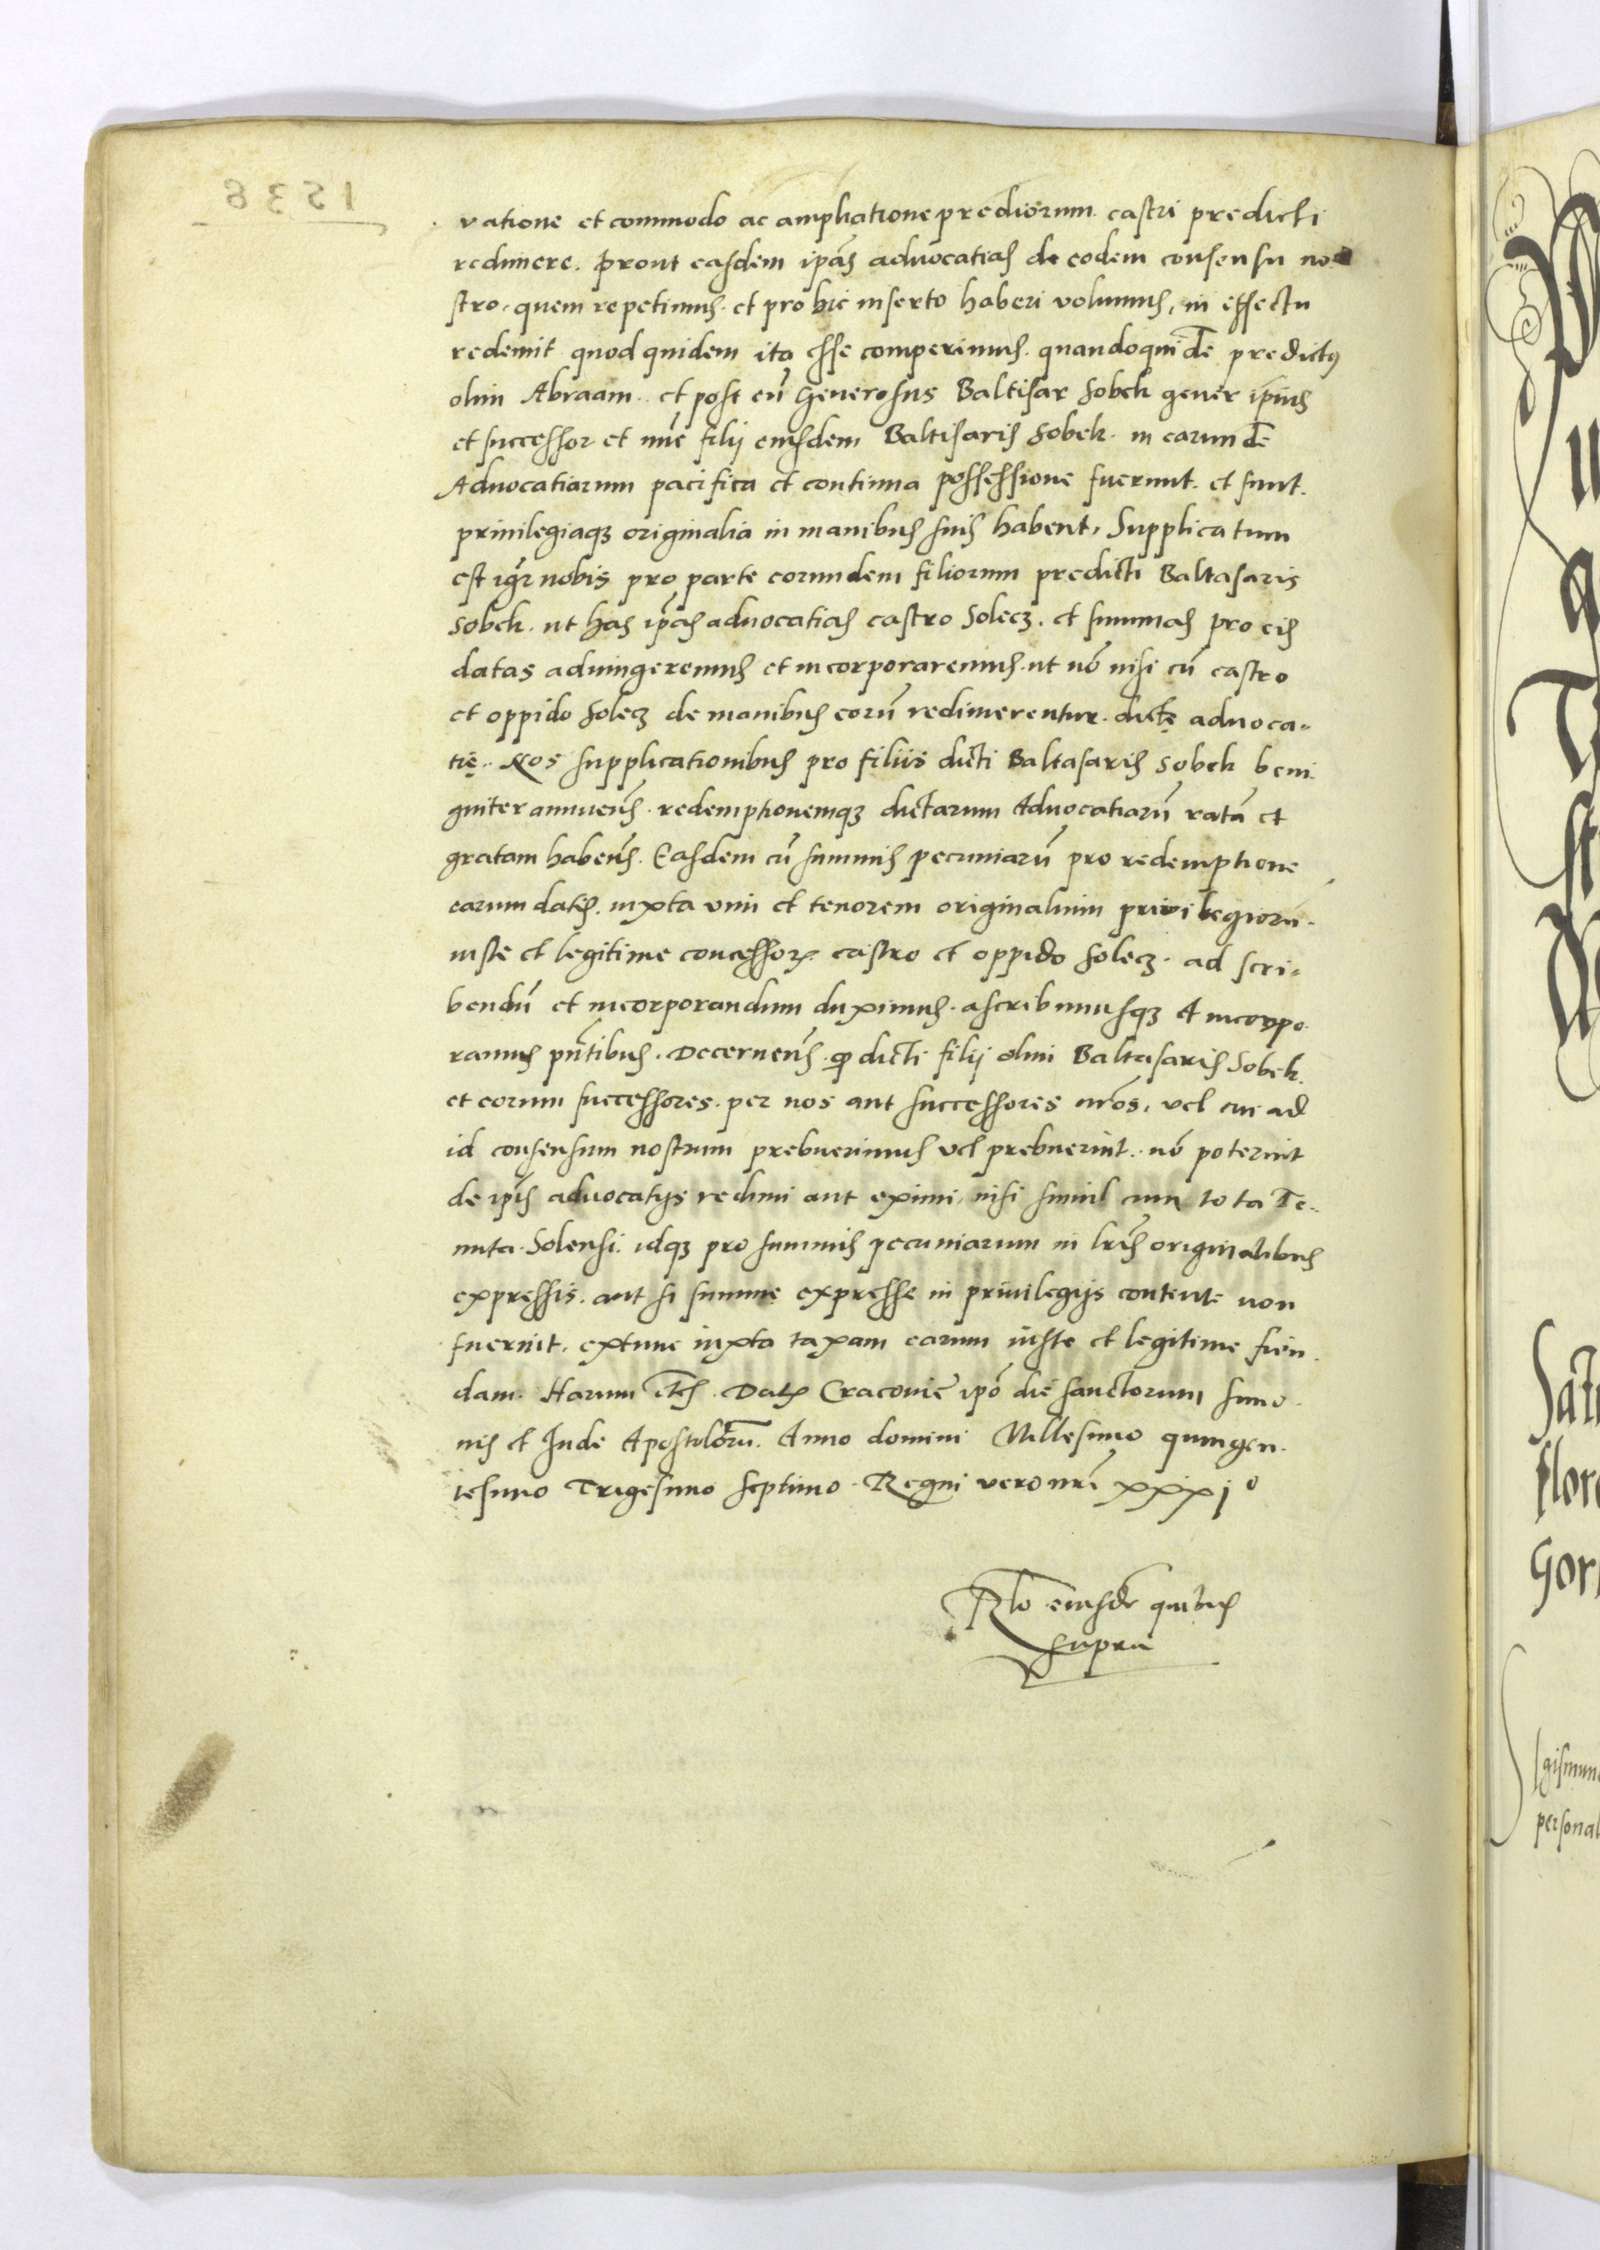 vatione et commodo ac ampliatione prediorum castri predicti
redimere. Prout easdem ipãs aduocatias de eodem consensu no-
stro, quem repetimus et pro hic inserto haberi volumus, in effectu
redemit quod quidem ita esse comperimus. quandoquidẽ predictus
olim Abraam et post eũ Generosus Baltisar Sobek gener ipius
et successor et nũc filij eiusdem Baltisaris Sobek in earundẽ
Aduocatiarum pacifica et continua possessione fuerunt et sunt.
priuilegiaqȝ originalia in manibus suis habent, Supplicatum
est igr̃ nobis pro parte eorundem filiorum predicti Baltasaris
Sobek. ut has ipãs aduocatias castro Solecȝ. et summas pro eis
datas adiungeremus et incorporaremus. ut nõ nisi cũ castro
et oppido Solecȝ de manibus eorũ redimerentur. dictę aduoca-
tię. Nos supplicationibus pro filiis dicti Baltasaris Sobek beni
gniter annueñs. redemptionemqȝ dictarum Aduocatiarũ ratã et
gratam habeñs. Easdem cũ summis pecuniarũ pro redemptione
earum datis. iuxta vim et tenorem originalium priuilegiorũ.
iuste et legitime concessorꝝ castro et oppido Solecȝ. ad scri-
bendũ et incorporandum duximus. ascribimusqȝ et incorpo
ramus pñtibus. Decerneñs. ꝙ dicti filij olim Baltasaris Sobek.
et eorum successores. per nos aut successores nr̃os, vel cui ad
id consensum nostrum prebuerimus vel prebuerint. nõ poterint
de ipis aduocatijs redimi aut eximi, nisi simul cum tota Te-
nuta Solensi. idqȝ pro summis pecuniarum in lr̃is originalibus
expressis. aut si summe expresse in priuilegijs contente non
fuerint, extunc iuxta taxam earum iuste et legitime fien
dam. Harum etc̃. Datꝝ Cracouie ipõ die sanctorum Simo
nis et Jude Apostolorũ. Anno domini Millesimo quingen
tesimo Trigesimo septimo. Regni vero nr̃i xxxjº
Rlõ eiusdẽ quibus
supra